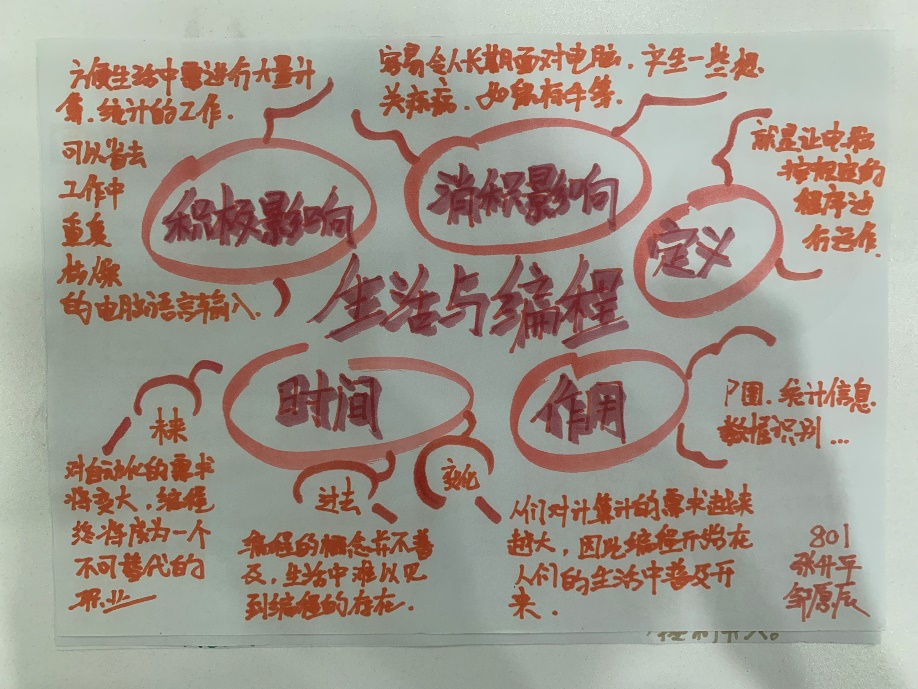 方便生活中需进行大量计
算.统计的工作.
可以省去
工作中
重复
枯燥
的电脑语言输入.
积极影响
容易令人长期面对电脑.产生一些相
关疾病.如鼠标手等.
消极影响
就是让电脑
按照
程序进
行运作
定义
生活与编程
时间
未来
对自动化的需求
将变大,编程
终将成为一个
不可替代的
职业
过去
编程的概念并不普
及,生活中难以见
到编程的存在.
变化
人们对计算计的需求越来
越大,因此编程开始在
人们的生活中普及开
来.
作用
P图.统计信息.
数据识别...
801
张升平
邹原辰